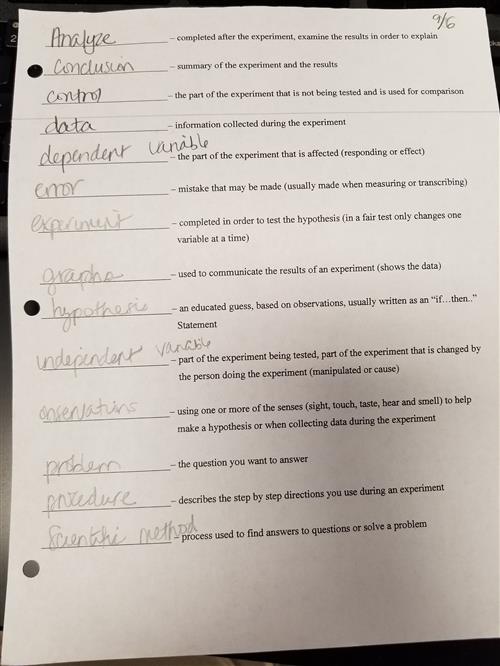 9/6
Analyze – completed after the experiment, examine the results in order to explain
conclusion – summary of the experiment and the results
control – the part of the experiment that is not being tested and is used for comparison
data – information collected during the experiment
dependent variable – the part of the experiment that is affected (responding or effect)
error – mistake that may be made (usually made when measuring or transcribing)
experiment – completed in order to test the hypothesis (in a fair test only changes one
variable at a time)
graphs – used to communicate the results of an experiment (shows the data)
hypothesis – an educated guess, based on observations, usually written as an “if…then..”
Statement
independent variable – part of the experiment being tested, part of the experiment that is changed by
the person doing the experiment (manipulated or cause)
onservations – using one or more of the senses (sight, touch, taste, hear and smell) to help
make a hypothesis or when collecting data during the experiment
problem – the question you want to answer
procedure – describes the step by step directions you use during an experiment
Scientific method – process used to find answers to questions or solve a problem